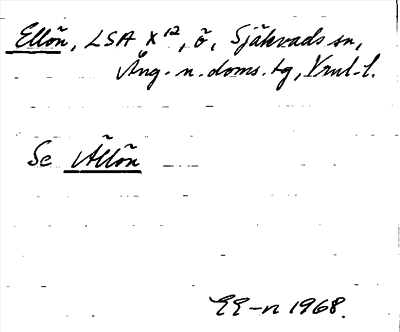 Ellön, LSA X 12, ö, Själevads sn,
Ång. n. doms. tg,
Se Ällön
1968.